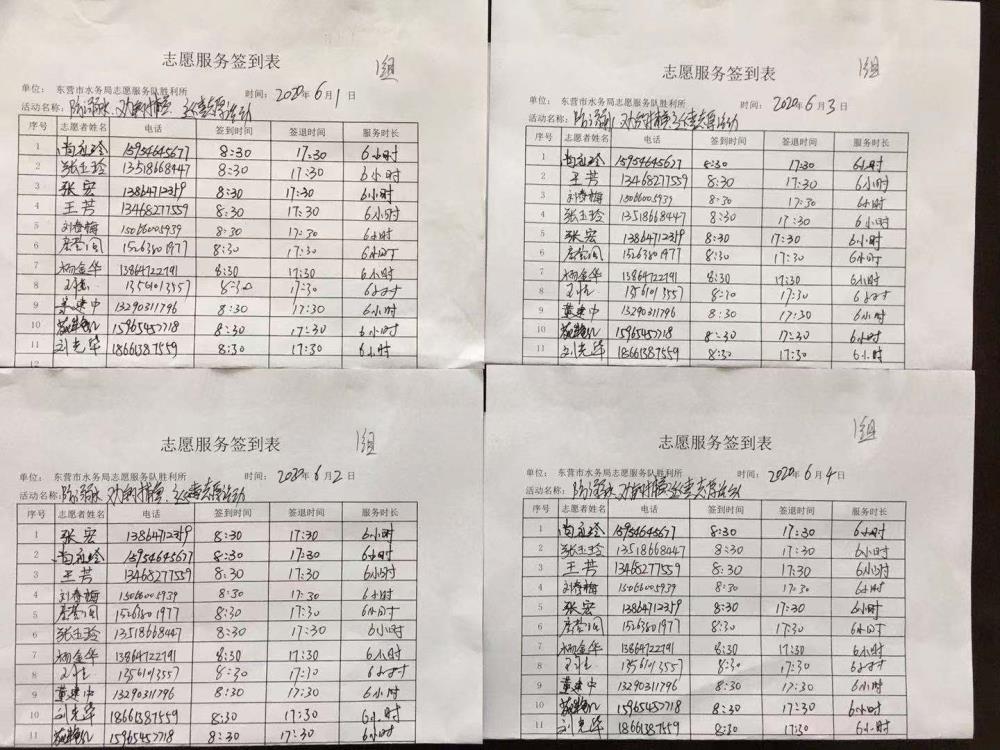 志愿服务签到表 1组
单位： 东营市水务局志愿服务队胜利所 时间：2020年6月1日
活动名称：防溺水、巡查志愿活动
序号 志愿者姓名 电话 签到时间 签退时间 服务时长
1 15954645677 8:30 17:30 6小时
2 张玉玲 13518668447 8:30 17:30 6小时
3 张宏 13864712319 8:30 17:30 6小时
4 王芳 13468277559 8:30 17:30 6小时
5 刘春梅 15066005939 8:30 17:30 6小时
6 15263801977 8:30 17:30 6小时
7 杨金华 13864722791 8:30 17:30 6小时
8 13561013557 8:30 17:30 6小时
9 黄建中 13290311796 8:30 17:30 6小时
10 15965452718 8:30 17:30 6小时
11 刘光华 18661387559 8:30 17:30 6小时
12
志愿服务签到表 1组
单位： 东营市水务局志愿服务队胜利所 时间：2020年6月3日
活动名称：防溺水、巡查志愿活动
序号 志愿者姓名 电话 签到时间 签退时间 服务时长
1 15954645677 8:30 17:30 6小时
2 王芳 13468277559 8:30 17:30 6小时
3 刘春梅 15066005939 8:30 17:30 6小时
4 张玉玲 13518668447 8:30 17:30 6小时
5 张宏 13864712319 8:30 17:30 6小时
6 15263801977 8:30 17:30 6小时
7 杨金华 13864722791 8:30 17:30 6小时
8 13561013557 8:30 17:30 6小时
9 黄建中 13290311796 8:30 17:30 6小时
10 15965452718 8:30 17:30 6小时
11 刘光华 18661387559 8:30 17:30 6小时
志愿服务签到表 1组
单位： 东营市水务局志愿服务队胜利所 时间：2020年6月2日
活动名称：防溺水、巡查志愿活动
序号 志愿者姓名 电话 签到时间 签退时间 服务时长
1 张宏 13864712319 8:30 17:30 6小时
2 15954645677 8:30 17:30 6小时
3 王芳 13468277559 8:30 17:30 6小时
4 刘春梅 15066005939 8:30 17:30 6小时
5 15263801977 8:30 17:30 6小时
6 张玉玲 13518668447 8:30 17:30 6小时
7 杨金华 13864722791 8:30 17:30 6小时
8 13561013557 8:30 17:30 6小时
9 黄建中 13290311796 8:30 17:30 6小时
10 刘光华 18661387559 8:30 17:30 6小时
11 15965452718 8:30 17:30 6小时
志愿服务签到表 1组
单位： 东营市水务局志愿服务队胜利所 时间：2020年6月4日
活动名称：防溺水、巡查志愿活动
序号 志愿者姓名 电话 签到时间 签退时间 服务时长
1 15954645677 8:30 17:30 6小时
2 张玉玲 13518668447 8:30 17:30 6小时
3 王芳 13468277559 8:30 17:30 6小时
4 刘春梅 15066005939 8:30 17:30 6小时
5 张宏 13864712319 8:30 17:30 6小时
6 15263801977 8:30 17:30 6小时
7 杨金华 13864722791 8:30 17:30 6小时
8 13561013557 8:30 17:30 6小时
9 黄建中 13290311796 8:30 17:30 6小时
10 15965452718 8:30 17:30 6小时
11 刘光华 18661387559 8:30 17:30 6小时